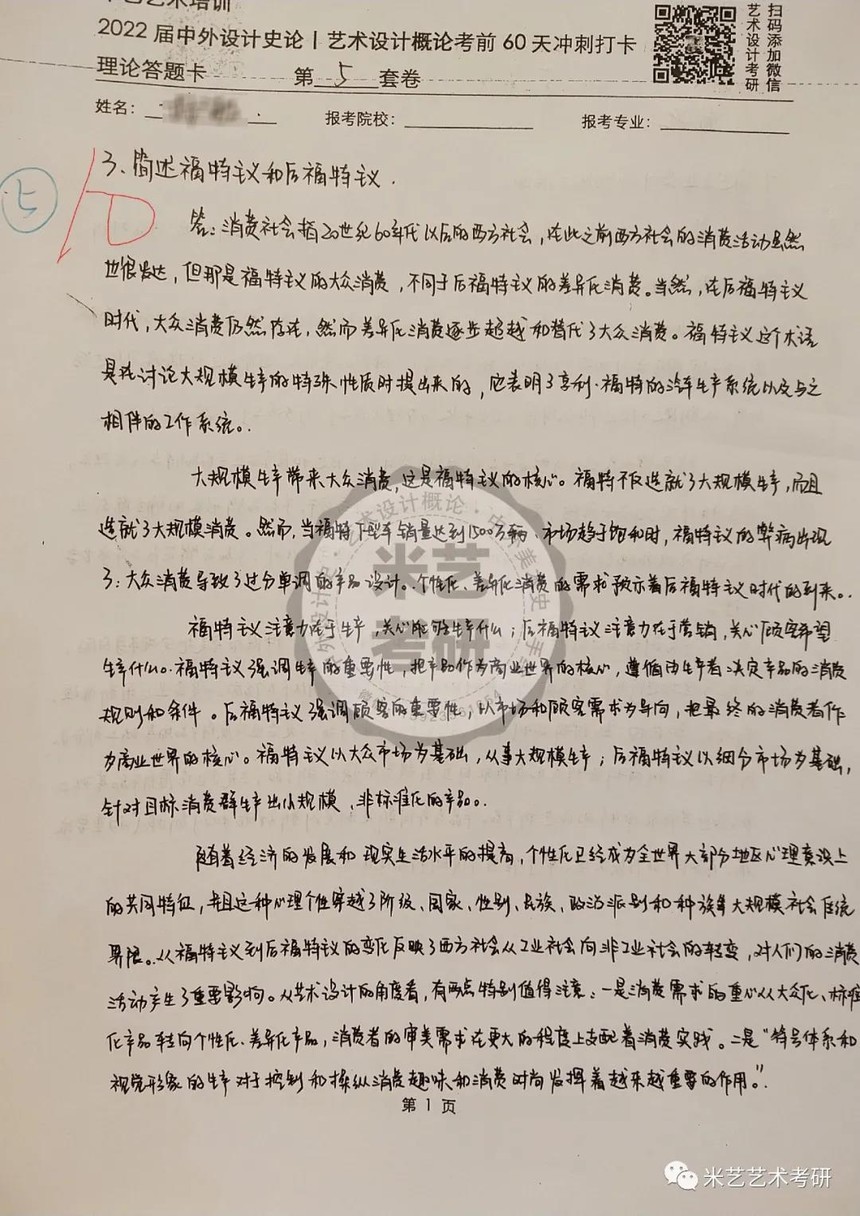 艺艺术培训
2022 届中外设计史论丨艺术设计概论考前 60 天冲刺打卡
理论答题卡 第 5 套卷
扫码添加微信
艺术设计考研
姓名: 报考院校: 报考专业:
3、简述福特主义和后福特主义.
答: 消费社会指20世纪60年代以后的西方社会,在此之前西方社会的消费活动虽然
也很发达,但那是福特主义的大众消费,不同于后福特主义的差异化消费。当然,在后福特主义
时代,大众消费仍然存在,然而差异化消费逐步超越和替代了大众消费。福特主义这个术语
是在讨论大规模生产的特殊性质时提出来的,它表明了亨利·福特的汽车生产系统以及与之
相伴的工作系统。
大规模生产带来大众消费,这是福特主义的核心。福特不仅造就了大规模生产,而且
造就了大规模消费。然而,当福特T型车销量达到1500万辆、市场趋于饱和时,福特主义的弊病出现
了:大众消费导致了过分单调的产品设计。个性化、差异化消费的需求预示着后福特主义时代的到来。
福特主义注意力在于生产,关心能够生产什么;后福特主义注意力在于营销,关心顾客希望
生产什么。福特主义强调生产的重要性,把产品作为商业世界的核心,遵循由生产者决定产品的消费
规则和条件。后福特主义强调顾客的重要性,以市场和顾客需求为导向,把最终的消费者作
为商业世界的核心。福特主义以大众市场为基础,从事大规模生产;后福特主义以细分市场为基础,
针对目标消费群生产出小规模、非标准化的产品。
随着经济的发展和现实生活水平的提高,个性化已经成为全世界大部分地区心理意识上
的共同特征,并且这种心理个性穿越了阶级、国家、性别、民族、政治派别和种族等大规模社会传统
界限。从福特主义到后福特主义的变化反映了西方社会从工业社会向非工业社会的转变,对人们的消费
活动产生了重要影响。从艺术设计的角度看,有两点特别值得注意:一是消费需求的重心从大众化、标准
化产品转向个性化、差异化产品,消费者的审美需求在更大的程度上支配着消费实践。二是“符号体系和
视觉形象的生产对于控制和操纵消费趣味和消费时尚发挥着越来越重要的作用。”
第 1 页
米艺
考研
米艺艺术考研